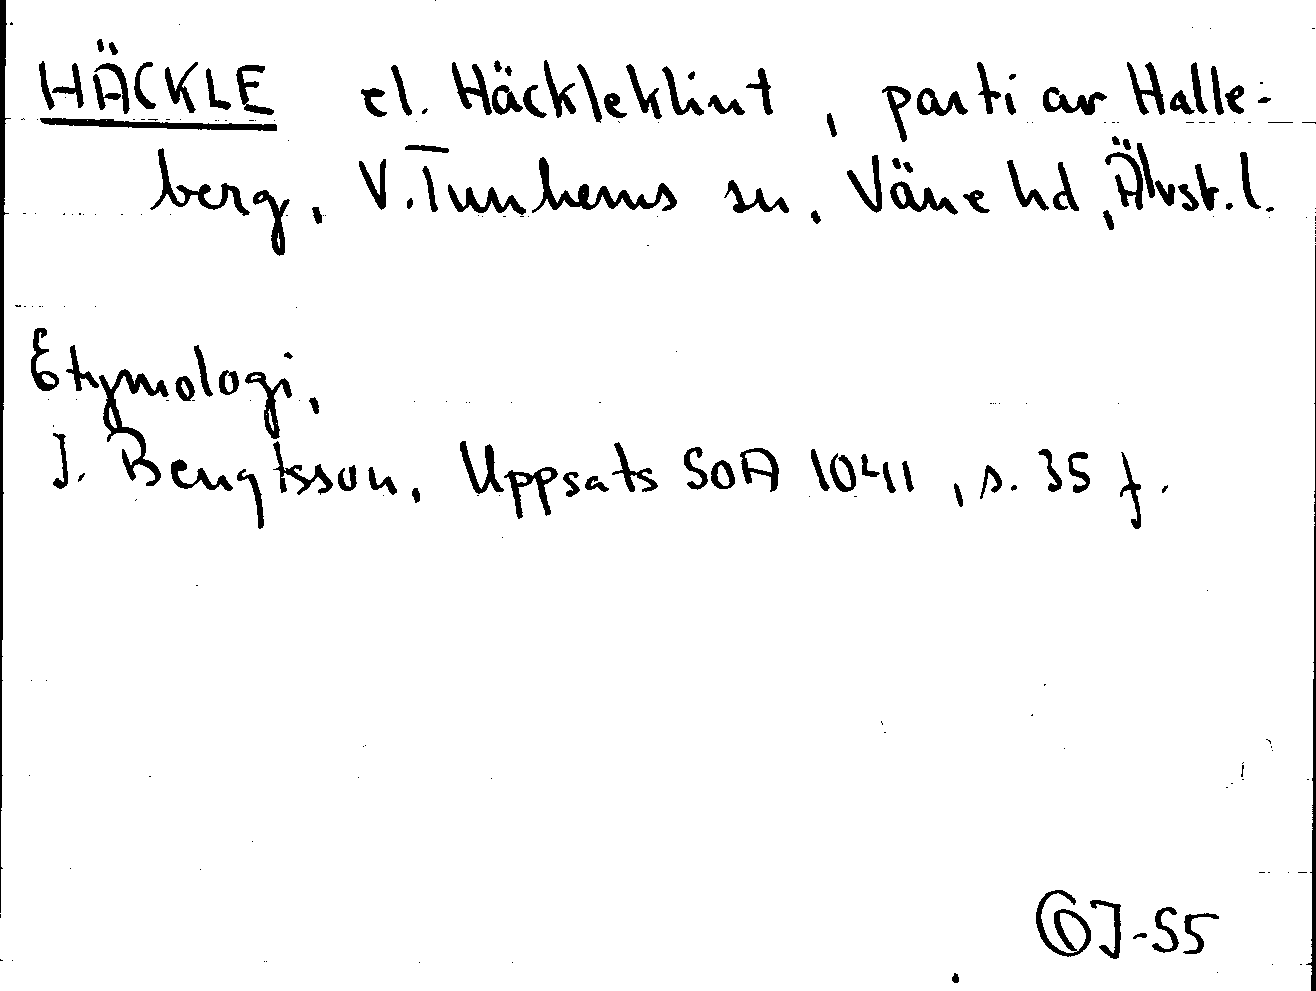 HÄCKLE el. Häckleklint, parti av Halle-
berg, V. Tunhems sn, Väne hd, Älvsb. l.
Etymologi,
J. Bengtsson, Uppsats SOA 1041, s. 35 f.